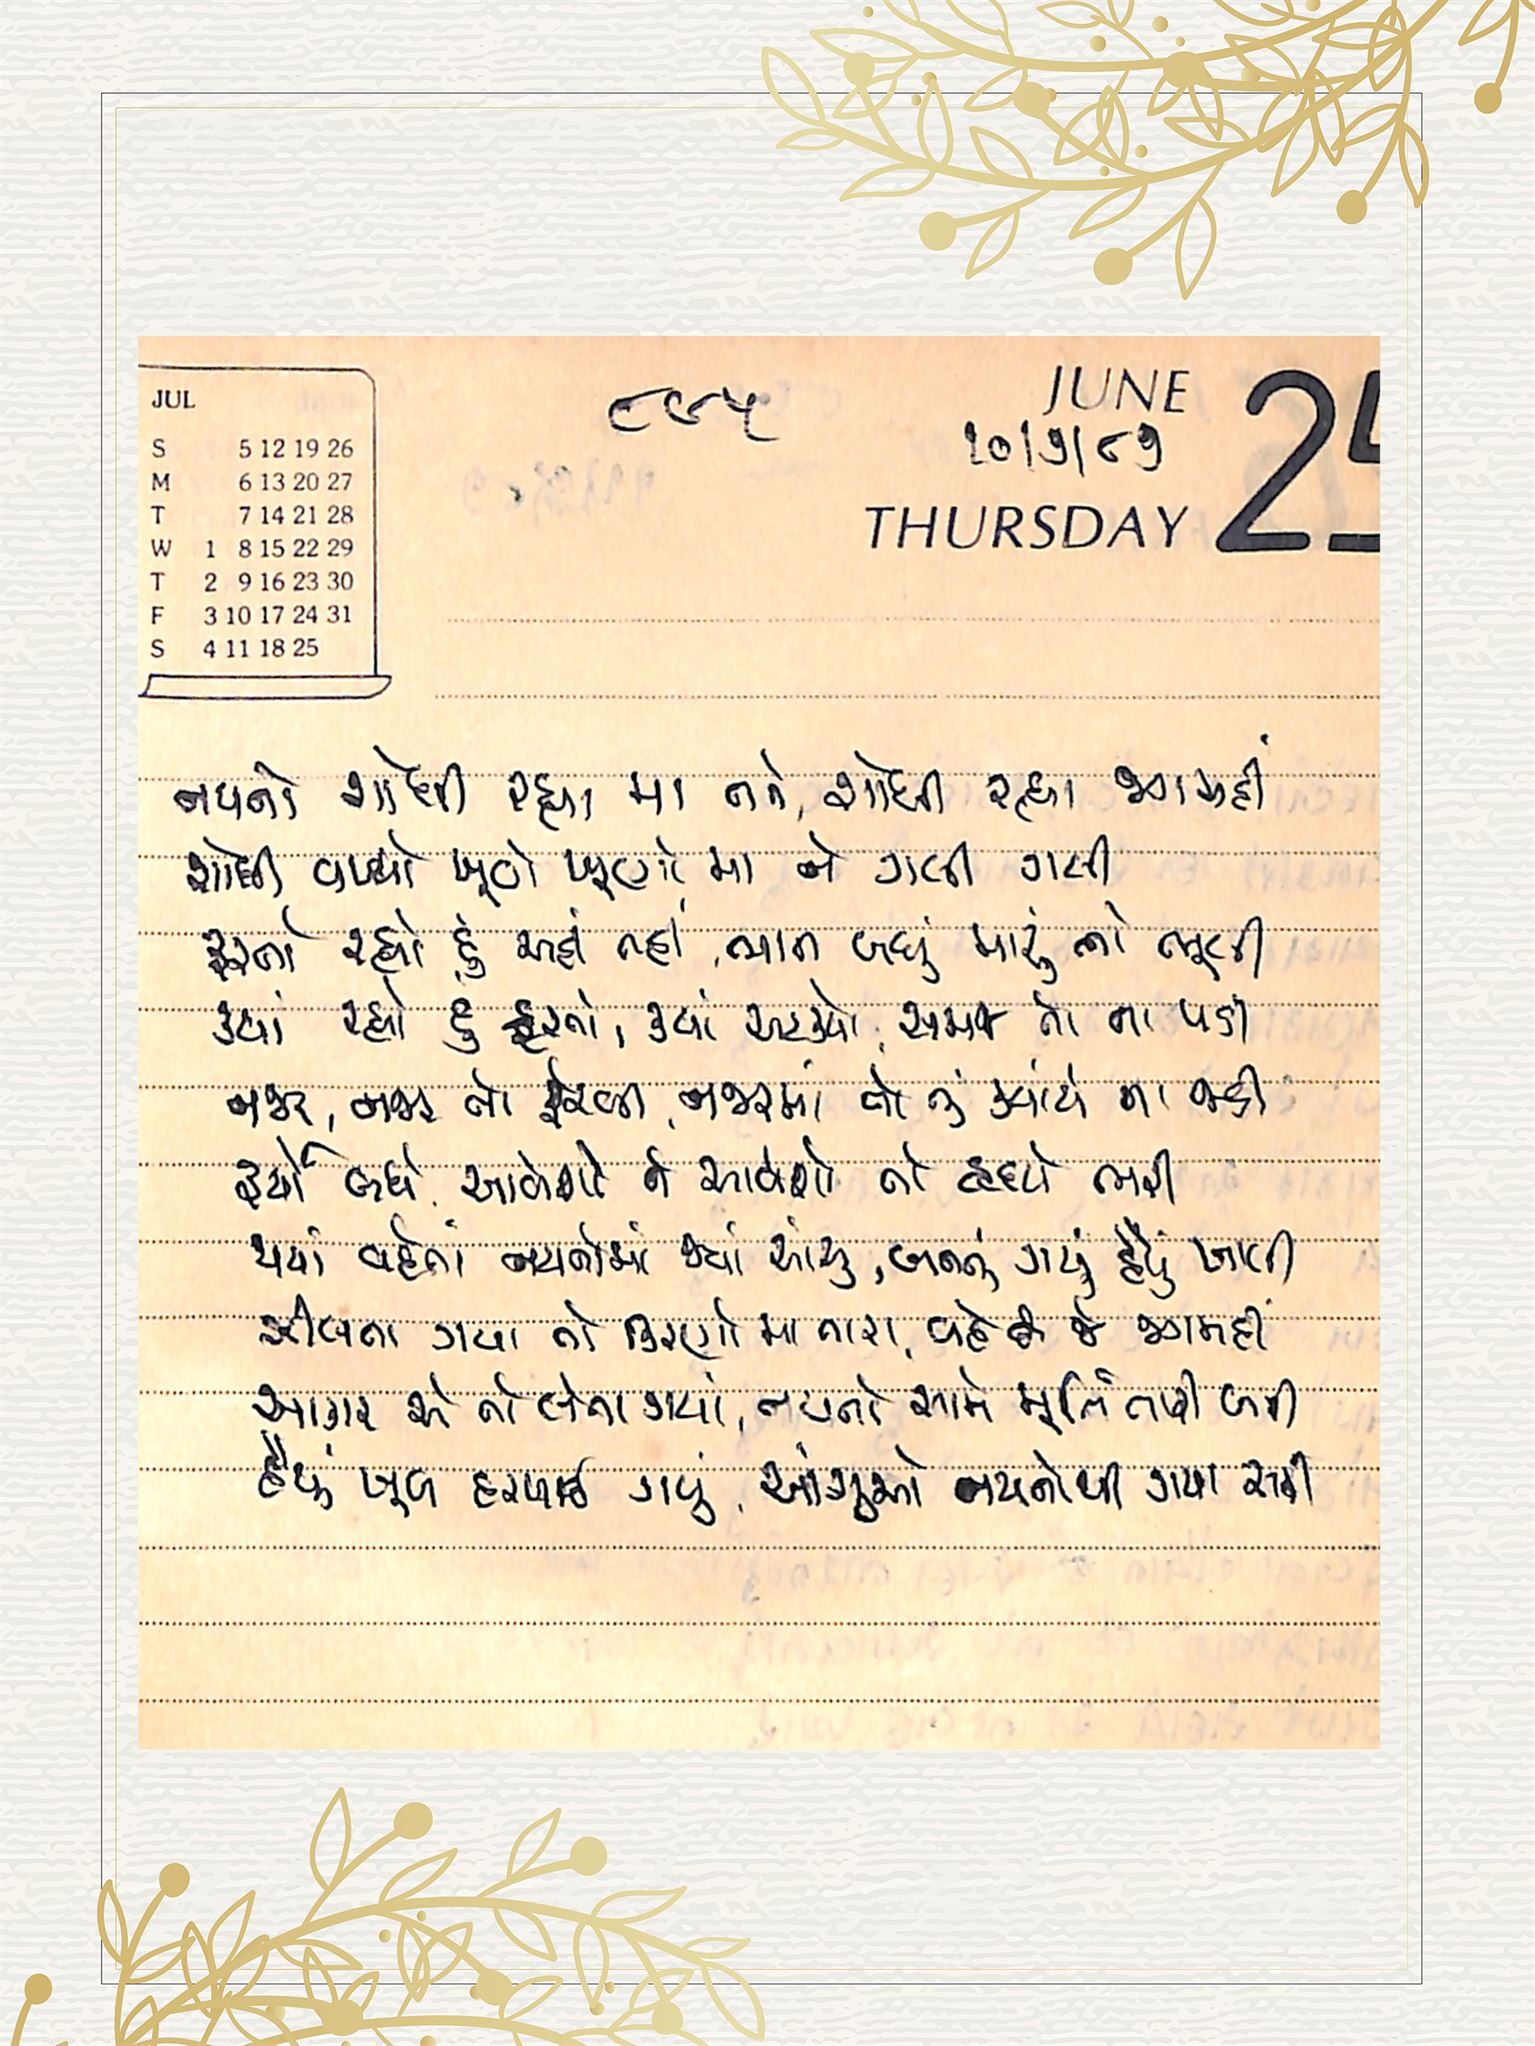 JUL
S 5 12 19 26
M 6 13 20 27
T 7 14 21 28
W 1 8 15 22 29
T 2 9 16 23 30
F 3 10 17 24 31
S 4 11 18 25
૮૯૫
JUNE
૨૦/૭/૮૭
THURSDAY
25
નયનો શોધી રહ્યા મા તને, શોધી રહ્યા જગમહીં
શોધી વળ્યો ખૂણે ખૂણો મા ને ગલી ગલી
ફરતો રહ્યો હું અહીં તહીં, ભાન બધું મારું તો ભૂલી
ક્યાં રહ્યો હું ફરતો, ક્યાં અટક્યો, સમજ તો ના પડી
નજર, નજર તો ફેરવી, નજરમાં તો તું ક્યાંયે ના જડી
ફર્યો બધે, આવેશો ને આવેશો તો હૃદયે ભરી
થયાં વહેતાં નયનોમાં જ્યાં આંસુ, બનતું ગયું હૈયું ખાલી
ઝીલતા ગયા તો કિરણો મા તારા, વહે છે જે જગમહીં
આકાર એ તો લેતા ગયાં, નયનો સામે મૂર્તિ તારી બની
હૈયું ખૂબ હરખાઈ ગયું, આંસુઓ નયનોથી ગયા સરી